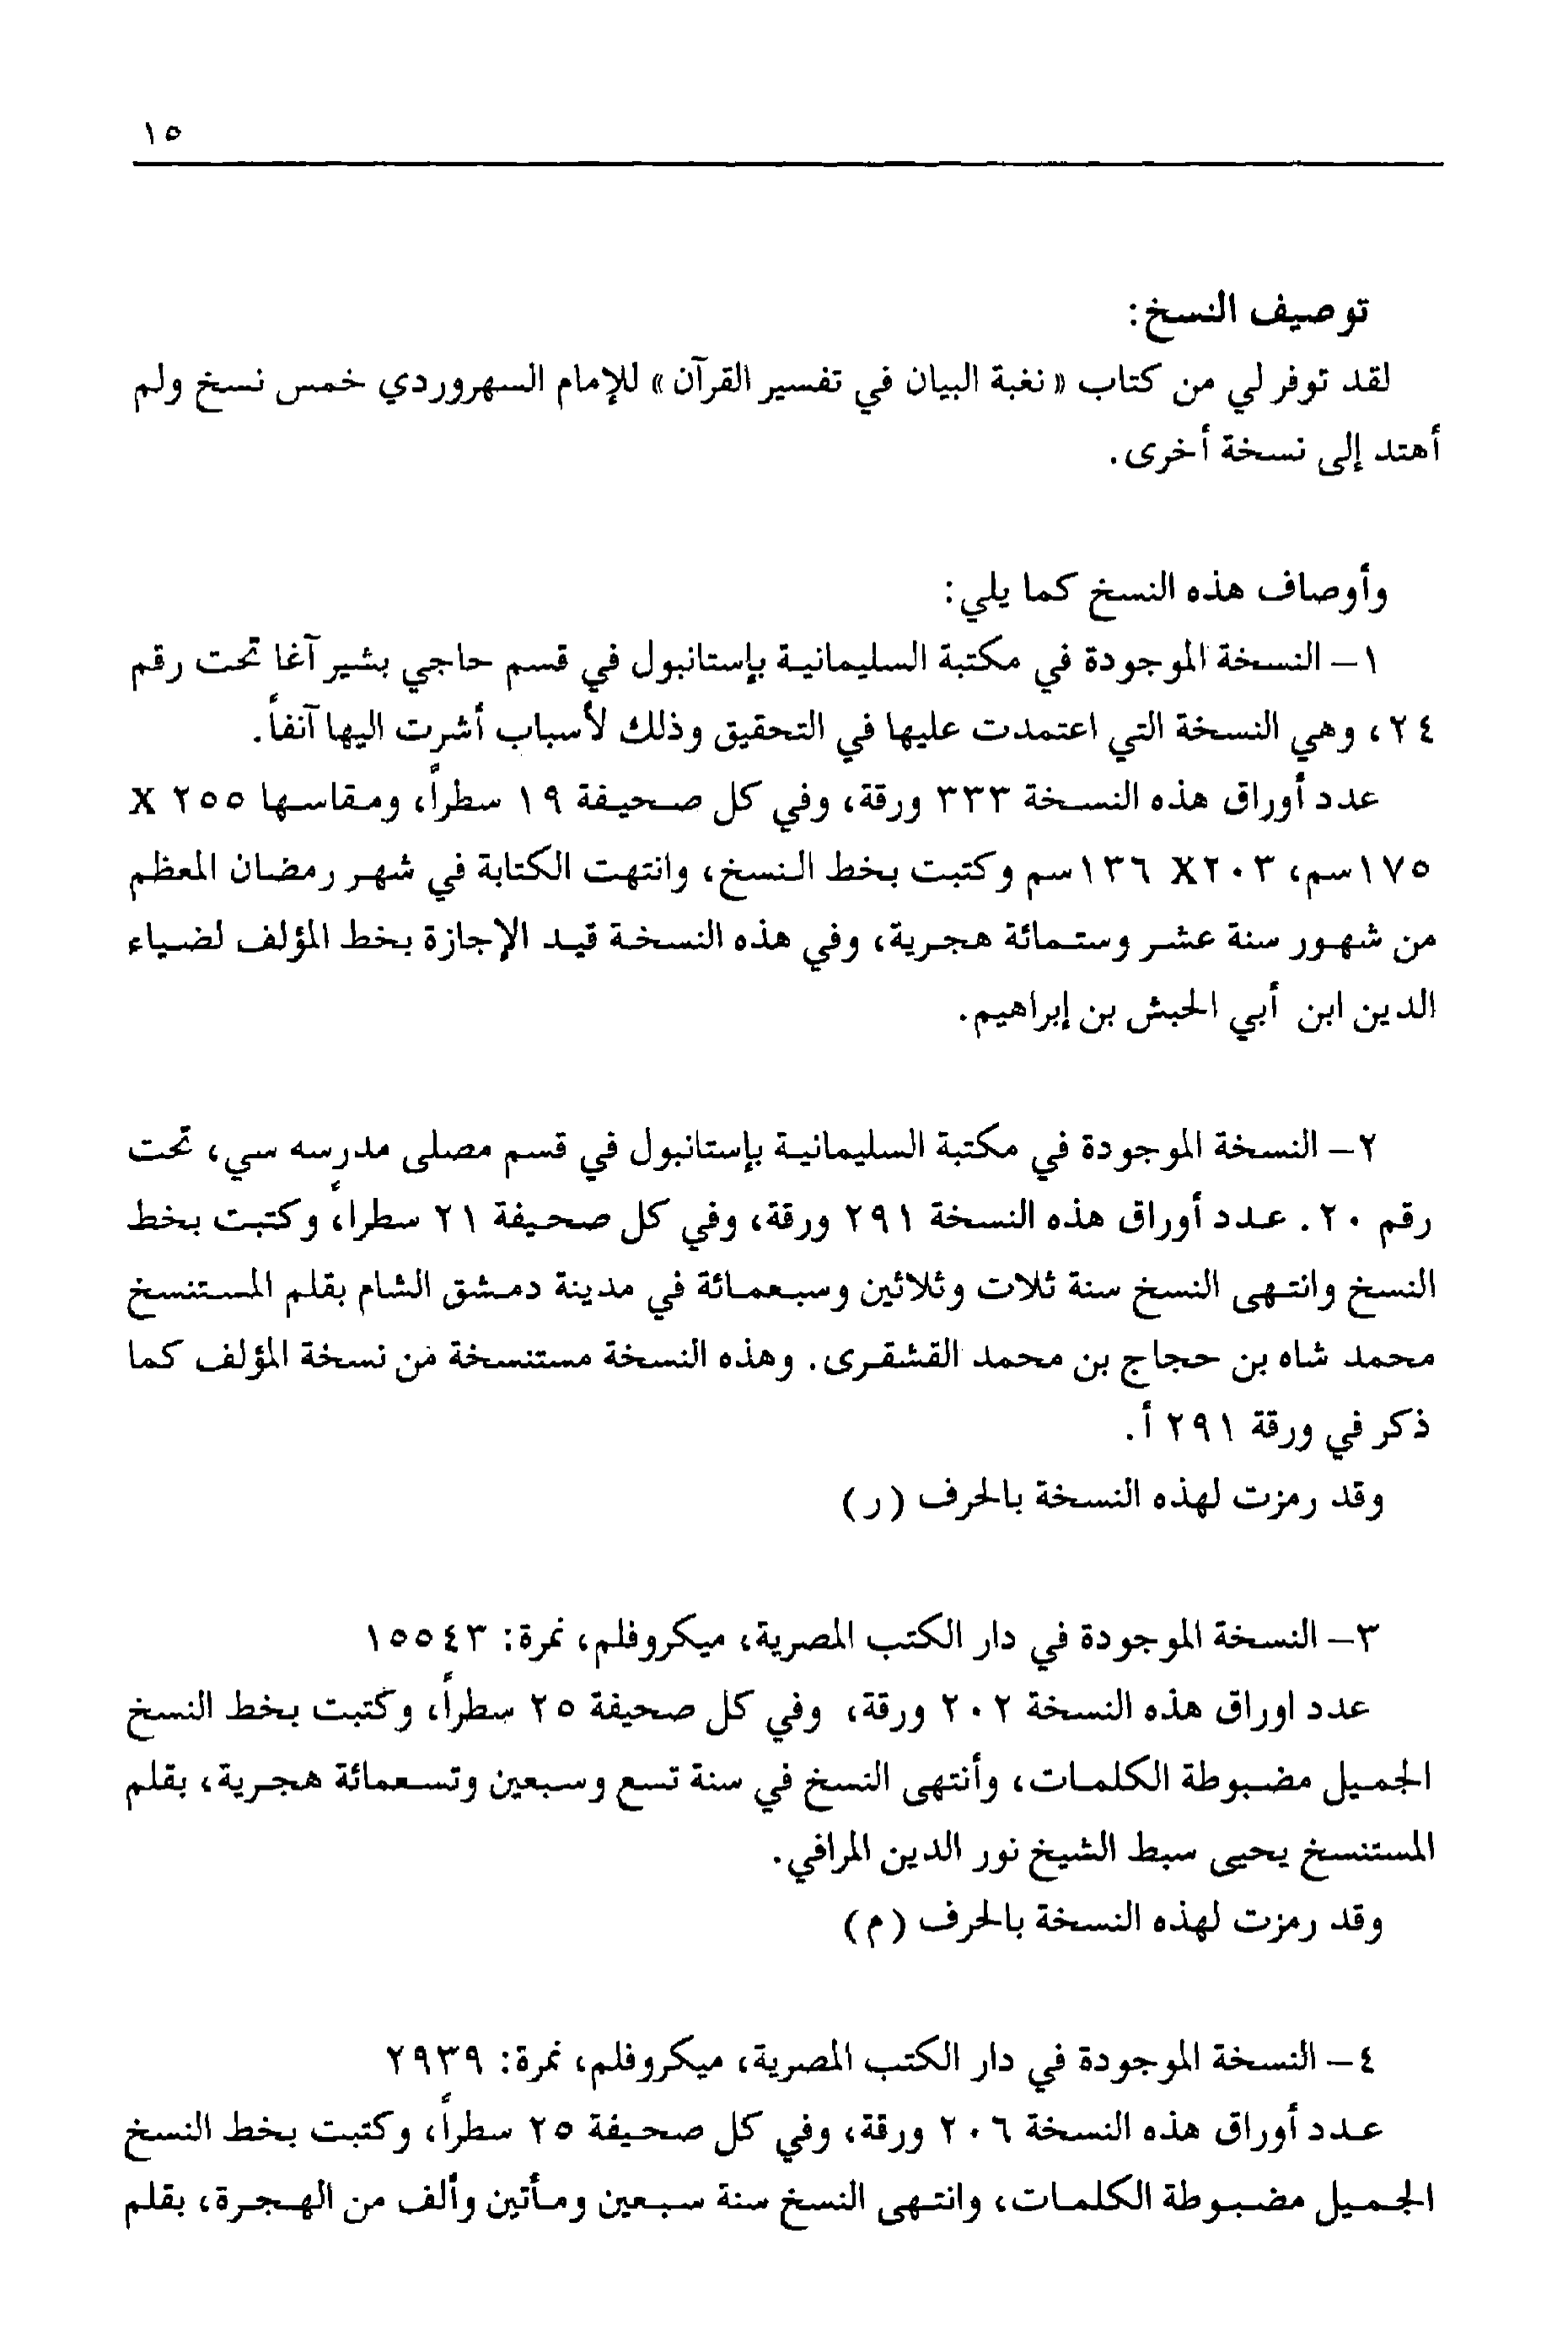 ١٥
توصيف النسخ:
لقد توفر لي من كتاب « نغبة البيان في تفسير القرآن » للإمام السهروردي خمس نسخ ولم
أهتد إلى نسخة أخرى.
وأوصاف هذه النسخ كما يلي:
١– النسخة الموجودة في مكتبة السليمانية بإستانبول في قسم حاجي بشير آغا تحت رقم
٢٤، وهي النسخة التي اعتمدت عليها في التحقيق وذلك لأسباب أشرت اليها آنفاً.
عدد أوراق هذه النسخة ٣٣٣ ورقة، وفي كل صحيفة ١٩ سطراً، ومقاسها ٢٥٥ X
١٧٥سم، ٢٠٣X ١٣٦سم وكتبت بخط النسخ، وانتهت الكتابة في شهر رمضان المعظم
من شهور سنة عشر وستمائة هجرية، وفي هذه النسخة قيد الإجازة بخط المؤلف لضياء
الدين ابن أبي الحبش بن إبراهيم.
٢– النسخة الموجودة في مكتبة السليمانية بإستانبول في قسم مصلى مدرسه سي، تحت
رقم ٢٠. عدد أوراق هذه النسخة ٢٩١ ورقة، وفي كل صحيفة ٢١ سطراً، وكتبت بخط
النسخ وانتهى النسخ سنة ثلاث وثلاثين وسبعمائة في مدينة دمشق الشام بقلم المستنسخ
محمد شاه بن حجاج بن محمد القشقرى. وهذه النسخة مستنسخة من نسخة المؤلف كما
ذكر في ورقة ٢٩١ أ.
وقد رمزت لهذه النسخة بالحرف (ر)
٣– النسخة الموجودة في دار الكتب المصرية، ميكروفلم، نمرة: ١٥٥٤٣
عدد اوراق هذه النسخة ٢٠٢ ورقة، وفي كل صحيفة ٢٥ سطراً، وكتبت بخط النسخ
الجميل مضبوطة الكلمات، وأنتهى النسخ في سنة تسع وسبعين وتسعمائة هجرية، بقلم
المستنسخ يحيى سبط الشيخ نور الدين المرافي.
وقد رمزت لهذه النسخة بالحرف (م)
٤– النسخة الموجودة في دار الكتب المصرية، ميكروفلم، نمرة: ٢٩٣٩
عدد أوراق هذه النسخة ٢٠٦ ورقة، وفي كل صحيفة ٢٥ سطراً، وكتبت بخط النسخ
الجميل مضبوطة الكلمات، وانتهى النسخ سنة سبعين ومأتين وألف من الهجرة، بقلم